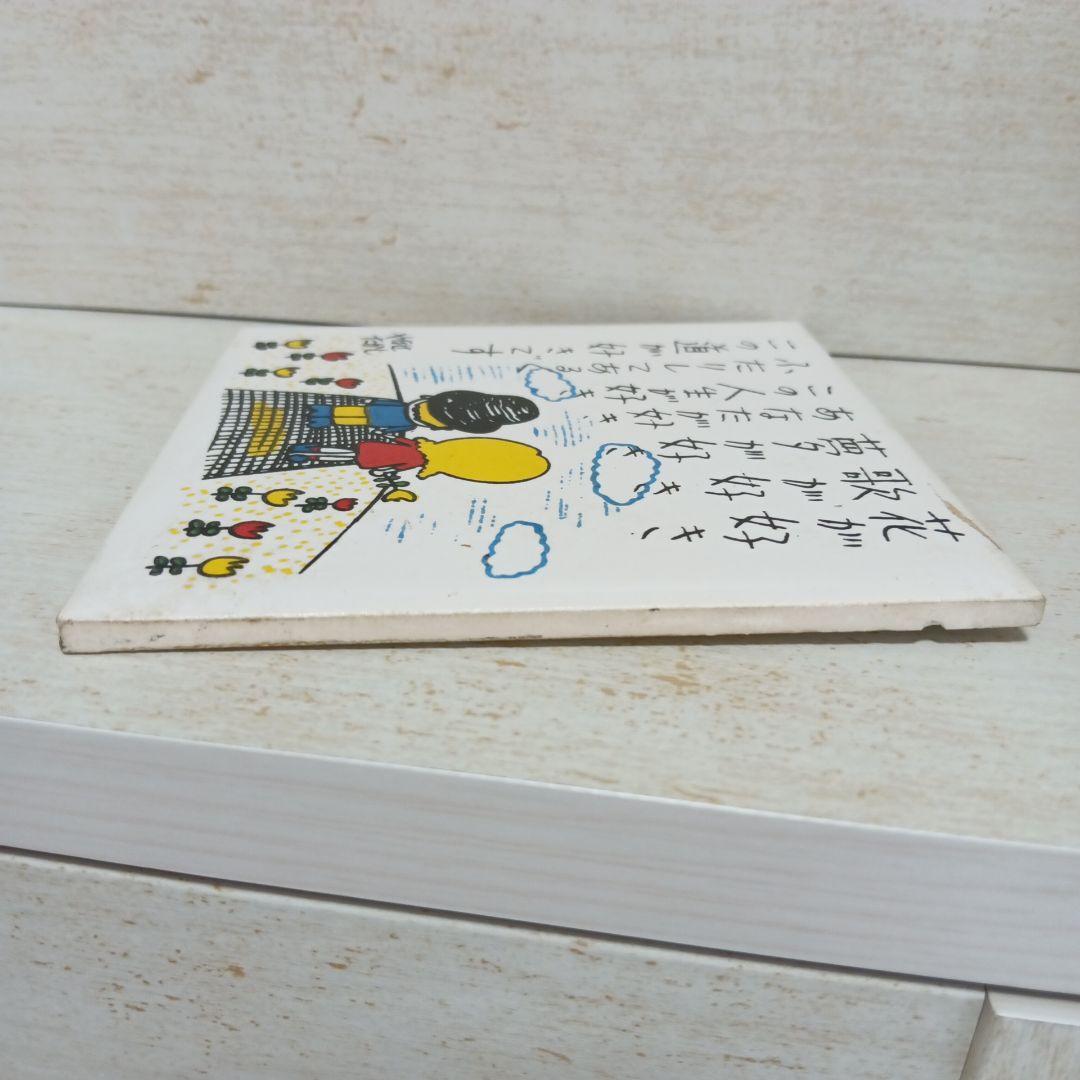 花が好き、
歌が好き、
夢が好き、
あなたが好き、
この人生が好き、
ふたりしてあるく
この道が好きです